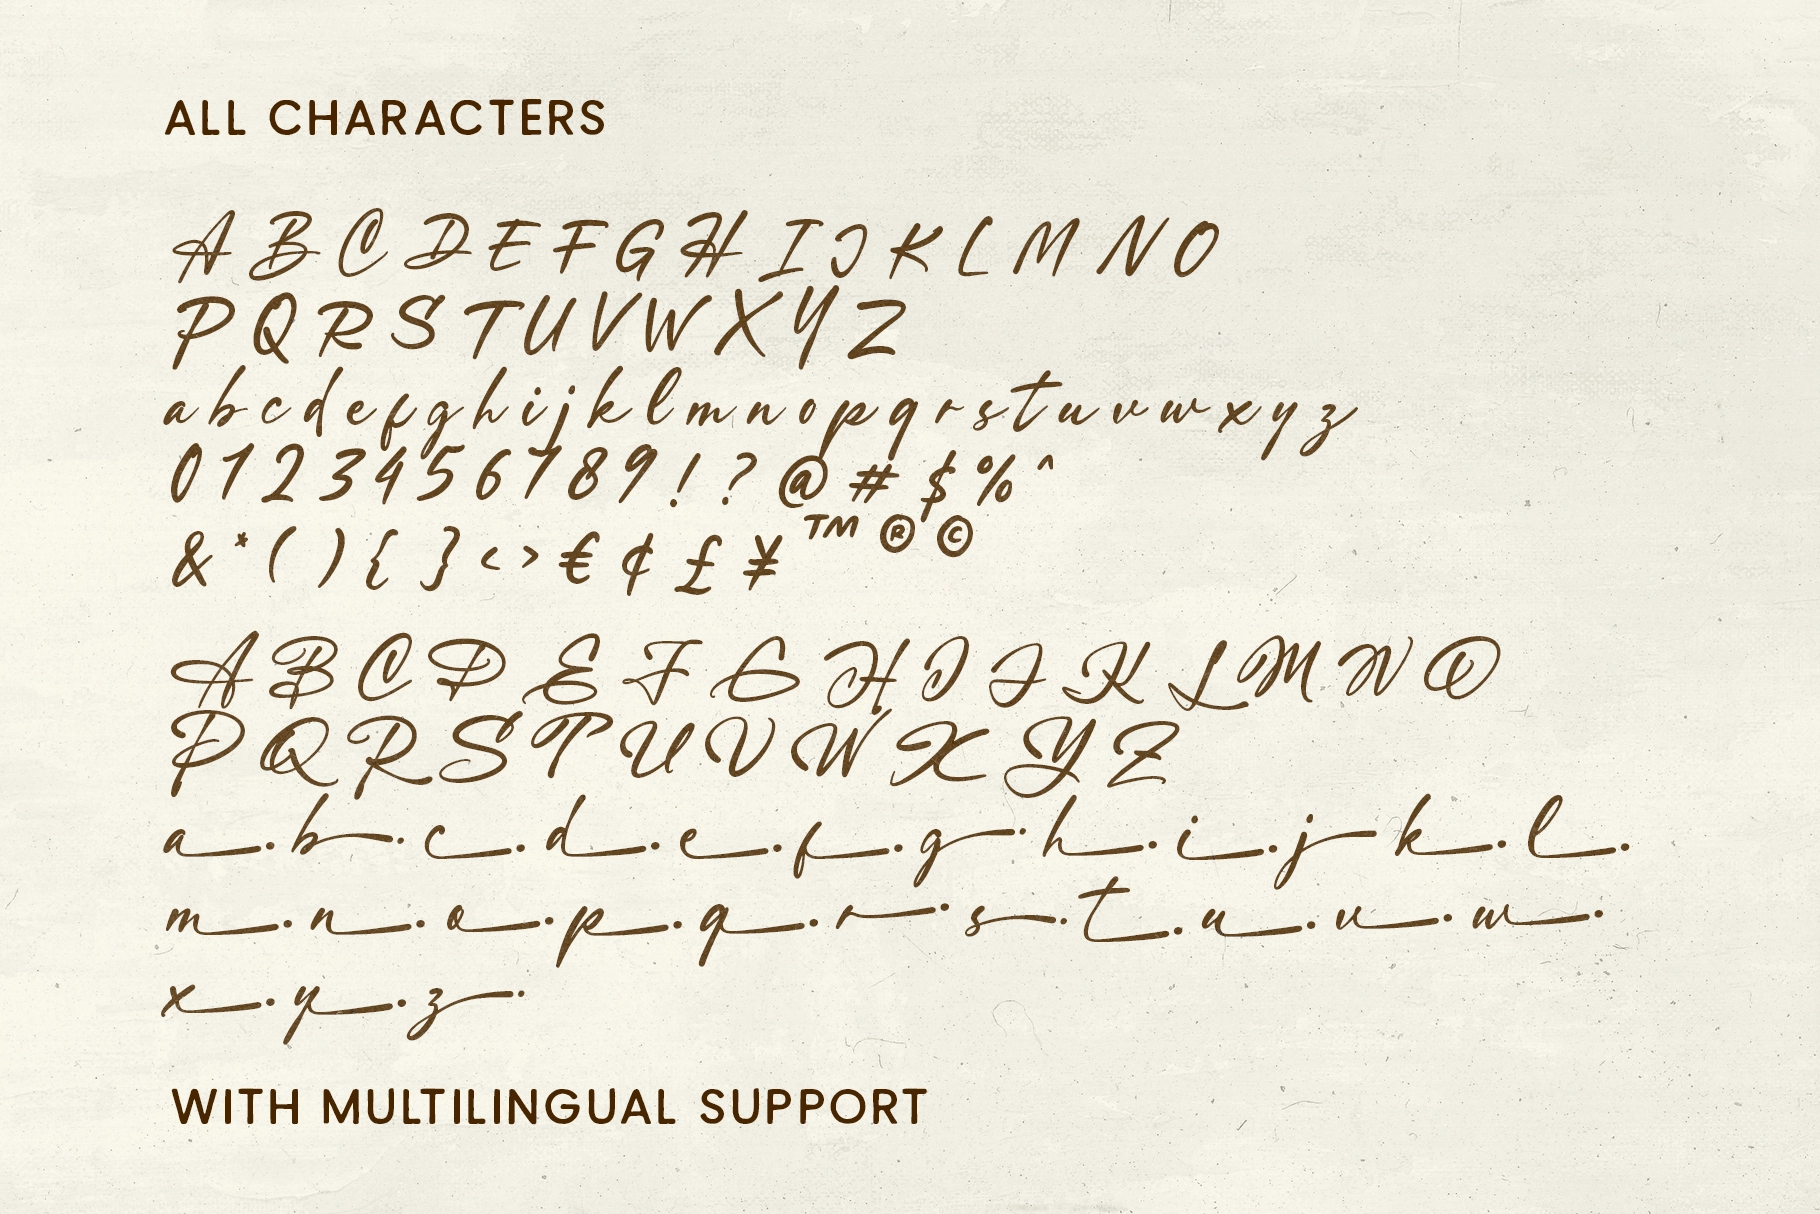 ALL CHARACTERS
A B C D E F G H I J K L M N O
P Q R S T U V W X Y Z
a b c d e f g h i j k l m n o p q r s t u v w x y z
0 1 2 3 4 5 6 7 8 9 ! ? @ # $ % ^
& * ( ) { } < > € ¢ £ ¥ ™ ® ©
A B C D E F G H I J K L M N O
P Q R S T U V W X Y Z
a_. b_. c_. d_. e_. f_. g_. h_. i_. j_ k_. l_.
m_. n_. o_. p_. q_. r_. s_. t_. u_. v_. w_.
x_. y_. z_.
WITH MULTILINGUAL SUPPORT